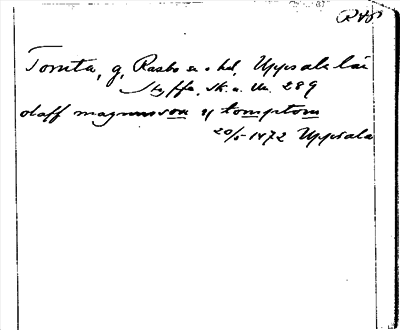 Tomta, g, Rasbo sn o hd, Uppsala län
Styffe, Sk. u. Un. 289
olaff magnusson ij tomptom
20/5 1472 Uppsala